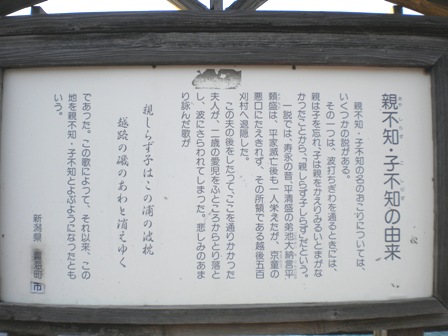 親不知・子不知の由来
親不知・子不知の名のおこりについては、
いくつかの説がある。
その一つは、波打ちぎわを通るときには、
親は子を忘れ、子は親をかえりみるいとまがな
かったことから、「親しらず子しらず」だという。
一説では、寿永の昔、平清盛の弟池大納言平
頼盛は、平家滅亡後も一人栄えたが、京童の
悪口にたえきれず、その所領である越後五百
刈村へ退隠した。
この夫の後をしたって、ここを通りかかった
夫人が、二歳の愛児をふところからとり落と
し、波にさらわれてしまった。悲しみのあま
り詠んだ歌が
親しらず子はこの浦の波枕
越路の磯のあわと消えゆく
であった。この歌によって、それ以来、この
地を親不知・子不知とよぶようになったとも
いう。
新潟県
市